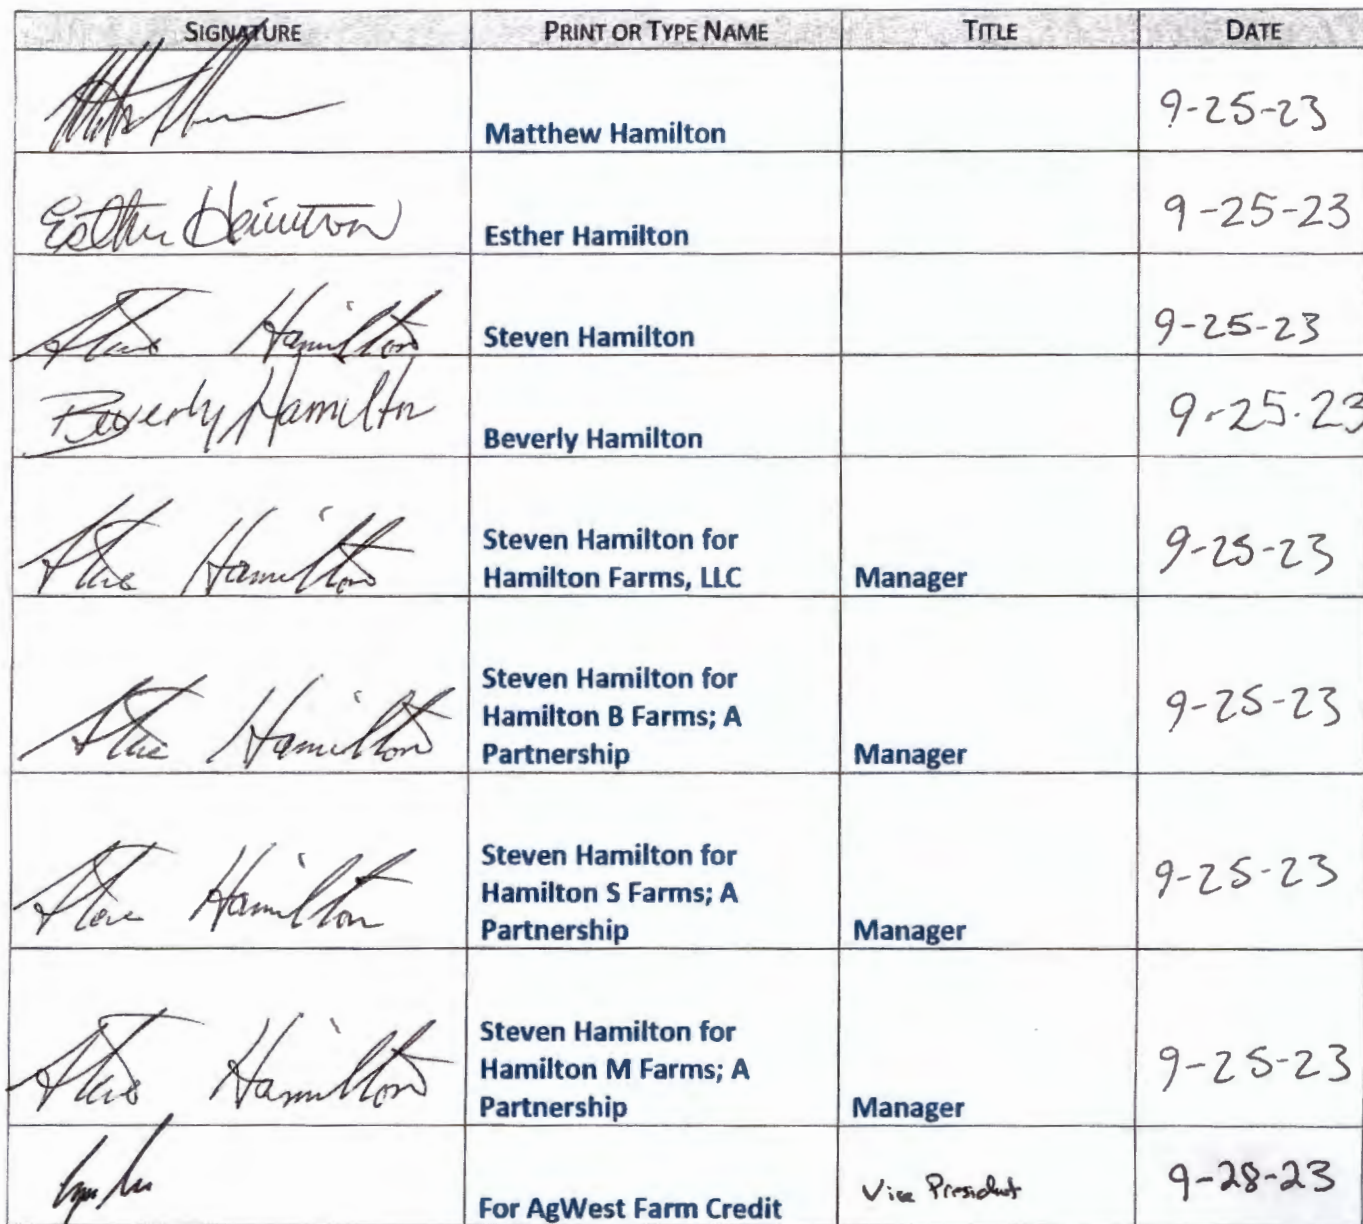 SIGNATURE PRINT OR TYPE NAME TITLE DATE
Matthew Hamilton 9-25-23
Esther Hamilton Esther Hamilton 9-25-23
Steve Hamilton Steven Hamilton 9-25-23
Beverly Hamilton Beverly Hamilton 9-25-23
Steven Hamilton for
Steve Hamilton Hamilton Farms, LLC Manager 9-25-23
Steven Hamilton for
Hamilton B Farms; A
Steve Hamilton Partnership Manager 9-25-23
Steven Hamilton for
Hamilton S Farms; A
Steve Hamilton Partnership Manager 9-25-23
Steven Hamilton for
Hamilton M Farms; A
Steve Hamilton Partnership Manager 9-25-23
For AgWest Farm Credit Vice President 9-28-23